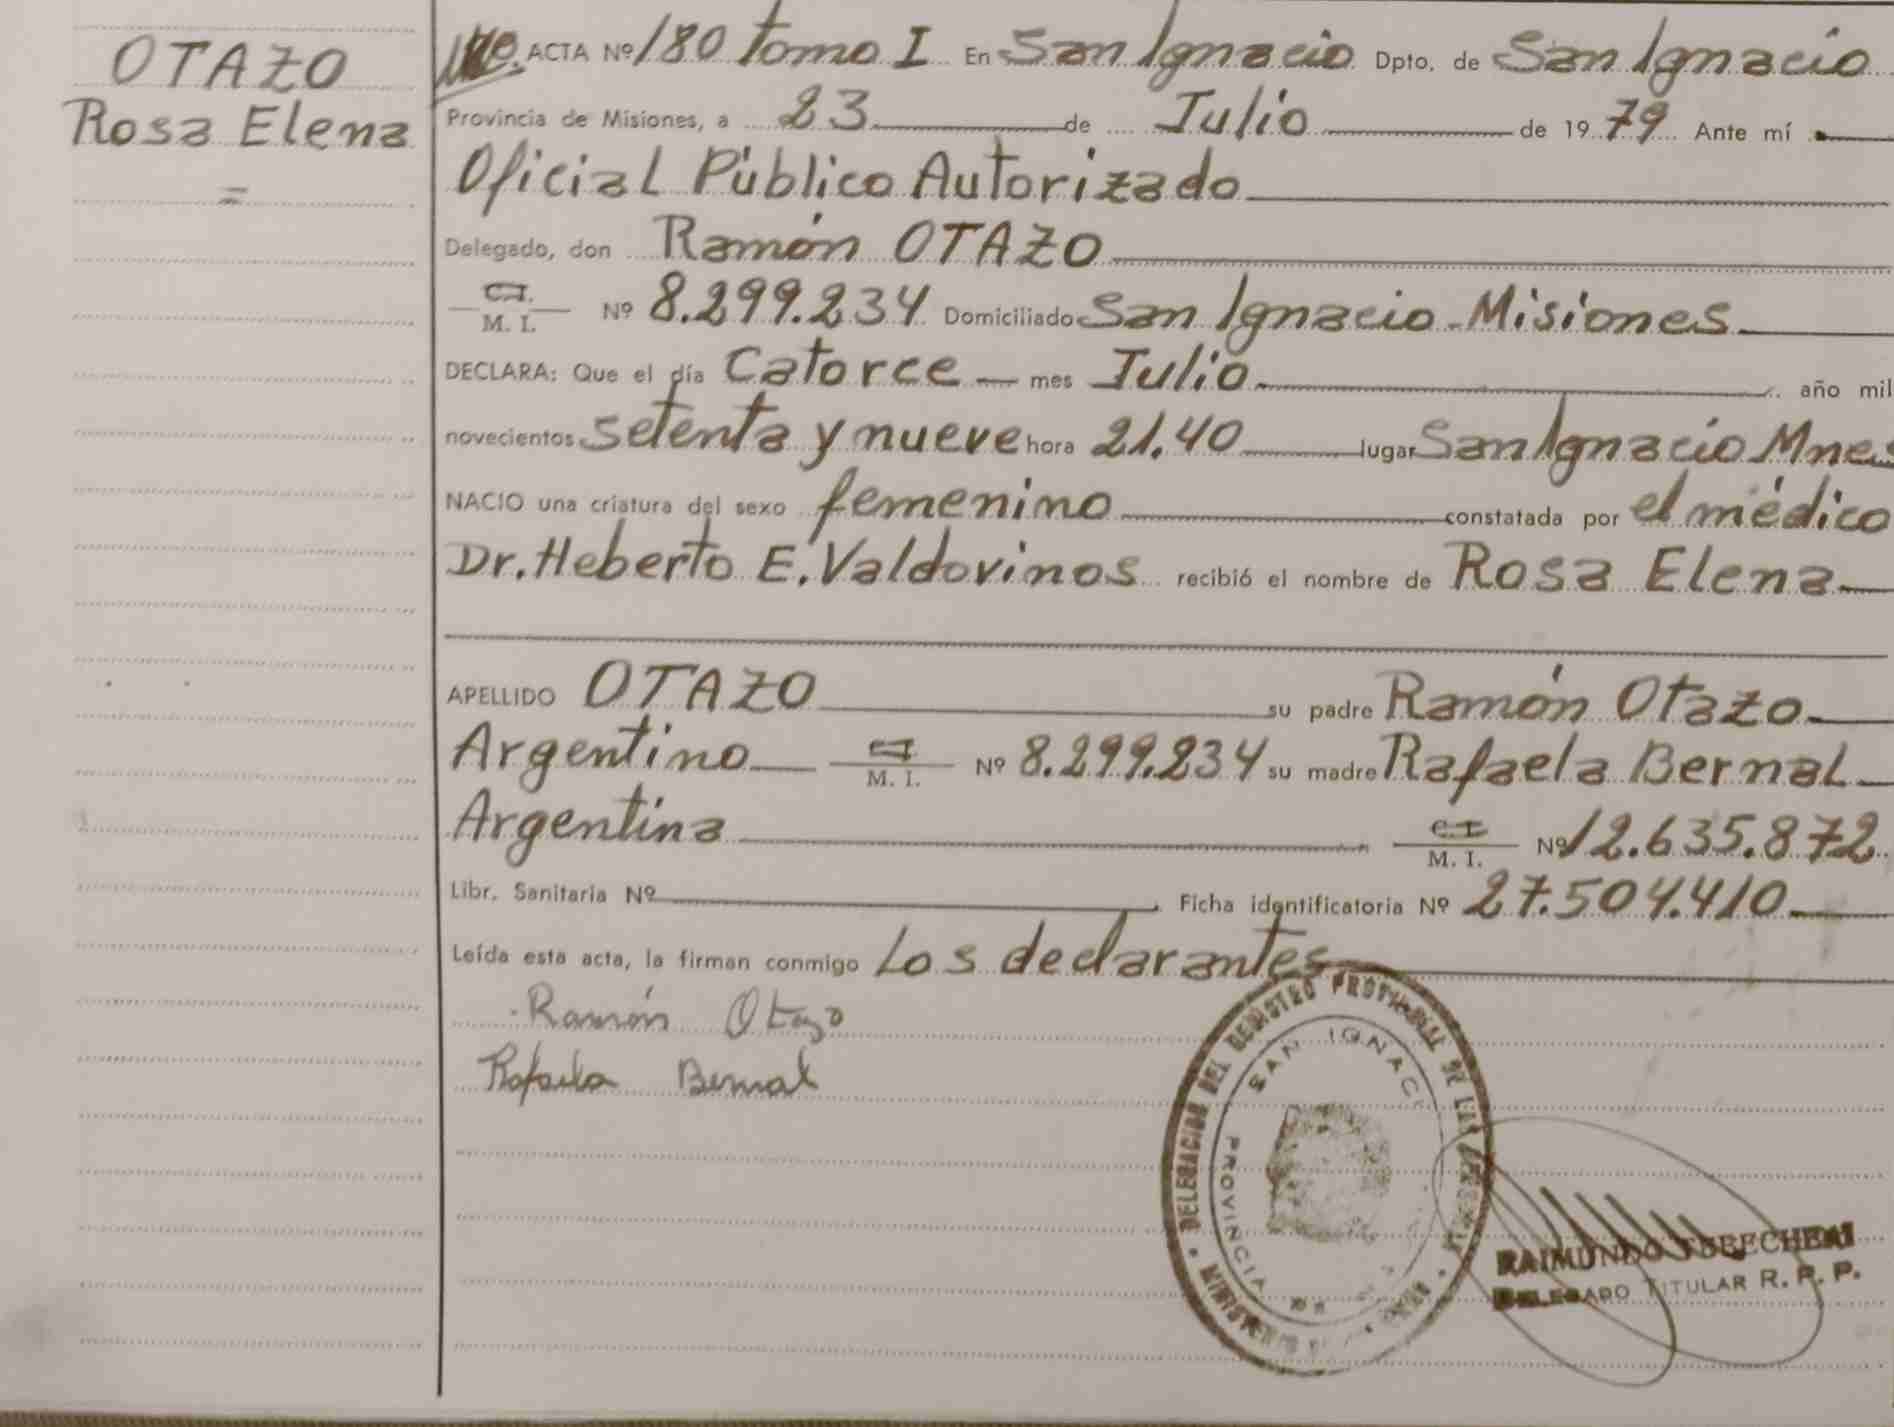 OTAZO
Rosa Elena
=
ACTA Nº 180 tomo I En San Ignacio Dpto. de San Ignacio
Provincia de Misiones, a 23 de Julio de 1979 Ante mí
Oficial Público Autorizado
Delegado, don Ramón OTAZO
C.I.
M. I. Nº 8.299.234 Domiciliado San Ignacio - Misiones
DECLARA: Que el día Catorce mes Julio año mil
novecientos setenta y nueve hora 21.40 lugar San Ignacio Mnes
NACIO una criatura del sexo femenino constatada por el médico
Dr. Heberto E. Valdovinos recibió el nombre de Rosa Elena
APELLIDO OTAZO su padre Ramón Otazo
Argentino C.I. M. I. Nº 8.299.234 su madre Rafaela Bernal
Argentina C.I. M. I. Nº 12.635.872
Libr. Sanitaria Nº Ficha identificatoria Nº 27.504.410
Leída esta acta, la firman conmigo Los declarantes
Ramón Otazo
Rafaela Bernal
DELEGACION DEL REGISTRO PROVINCIAL DE LAS PERSONAS
SAN IGNACI
PROVINCIA DE
MINISTERIO
RAIMUNDO
DELEGADO TITULAR R. P. P.